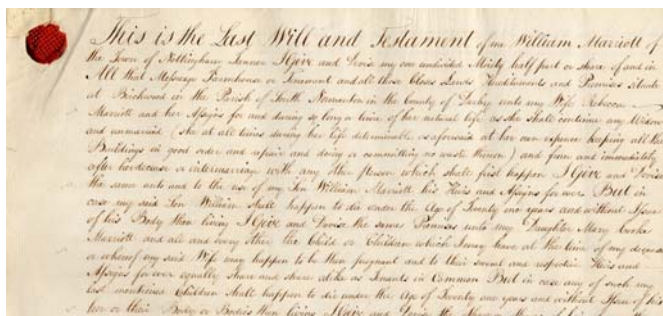 This is the Last Will and Testament of me William Marriott of
the Town of Nottingham Tanner I Give and Devise my one undivided Moiety half part or share of and in
All that Messuage Farmhouse or Tenement and all those Closes Lands Hereditaments and Premises situate
at Birchwood in the Parish of South Normanton in the County of Derby unto my Wife Rebecca
Marriott and her Assigns for and during so long a time of her natural life as she shall continue my Widow
and unmarried (she at all times during her life determinable as aforesaid at her own expence keeping all the
Buildings in good order and repair and doing or committing no waste thereon) and from and immediately
after her decease or intermarriage with any other person which shall first happen I Give and Devise
the same unto and to the use of my Son William Marriott his Heirs and Assigns for ever But in
case my said Son William shall happen to die under the Age of Twenty one years and without Issue
of his Body then living I Give and Devise the same Premises unto my Daughter Mary
Marriott and all and every other the Child or Children which I may have at the time of my decease
or whereof my said Wife may happen to be then pregnant and to their several and respective Heirs and
Assigns for ever equally share and share alike as Tenants in Common But in case any of such my
last mentioned Children shall happen to die under the Age of Twenty one years and without Issue of his
her or their Body or Bodies then living I Give and Devise the